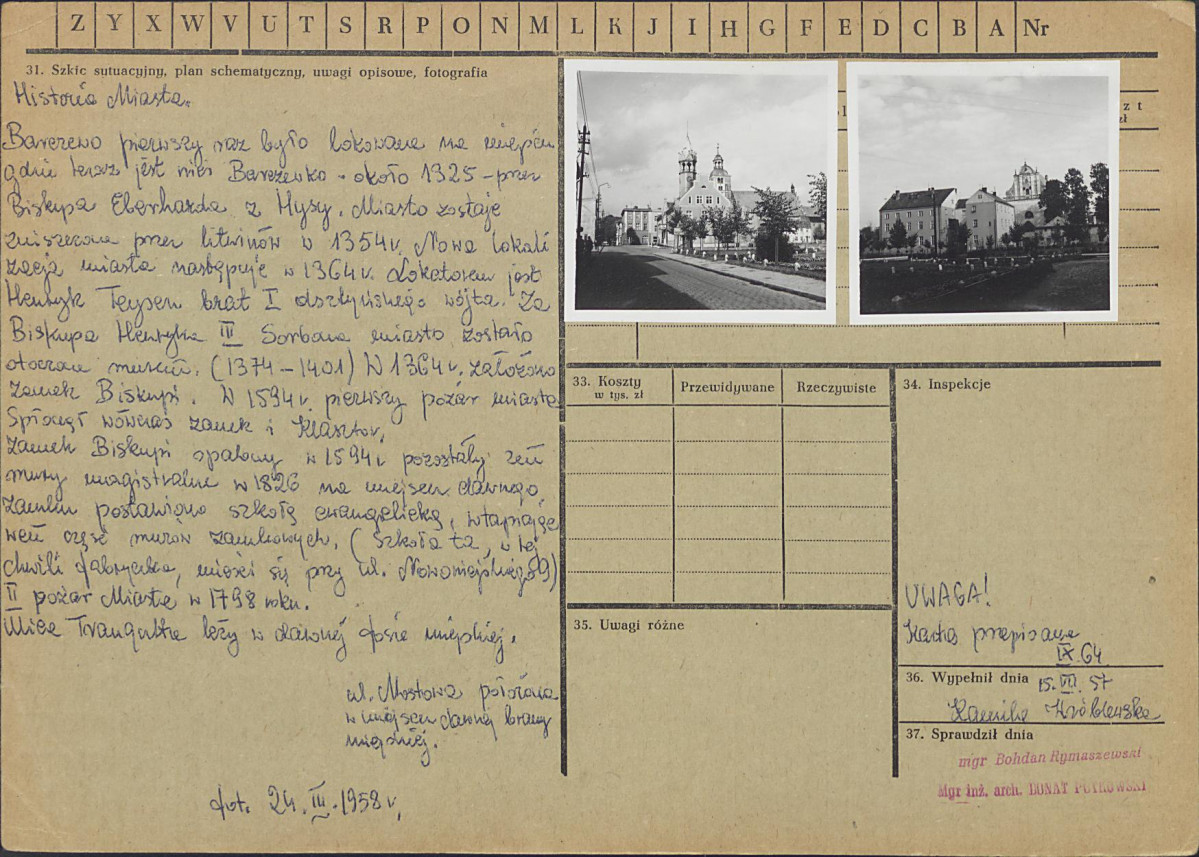 Z Y X W V U T S R P O N M L K J I H G F E D C B A Nr
31. Szkic sutuacyjny, plan schematyczny, uwagi opisowe, fotografia
Historia Miasta.
Barczewo pierwszy raz było lokowane na miejscu
gdzie teraz jest wieś Barczewko - około 1325 - przez
Biskupa Eberharda z Nysy. Miasto zostaje
zniszczone przez litwinów w 1354 r. Nowa lokali
zacja miasta następuje w 1364 r. Lokatorem jest
Henryk Teysen brat I olsztyńskiego wójta. Za
Biskupa Henryka III Sorboma miasto zostało
otoczone murem. (1374 - 1401) W 1364 r. założono
Zamek Biskupi. W 1594 r. pierwszy pożar miasta
Spłonął wówczas zamek i Klasztor,
Zamek Biskupi spalony w 1594 r pozostały zeń
mury magistralne w 1826 na miejscu dawnego
Zamku postawiono szkołę ewangelicką, wtapiając
weń część murów zamkowych. (Szkoła ta, w tej
chwili fabryczka, mieści się przy ul. Nowowiejskiego 9)
II pożar Miasta w 1798 roku.
Ulica Traugutta leży w dawnej fosie miejskiej.
ul. Mostowa położona
w miejscu dawnej bramy
miejskiej.
fot. 24. III. 1958 r,
z t
zł
33. Koszty
w tys. zł
Przewidywane
Rzeczywiste
34. Inspekcje
35. Uwagi różne
UWAGA!
Karta przepisana
IX.64
36. Wypełnił dnia 15. VII. 57
Kamila Wróblewska
37. Sprawdził dnia
mgr Bohdan Rymaszewski
Mgr inż. arch. DONAT PUTKOWSKI